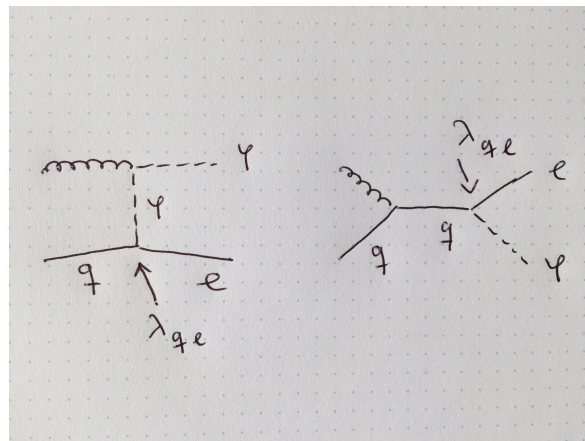 φ
φ
q e
λqe
λqe
e
q q
φ